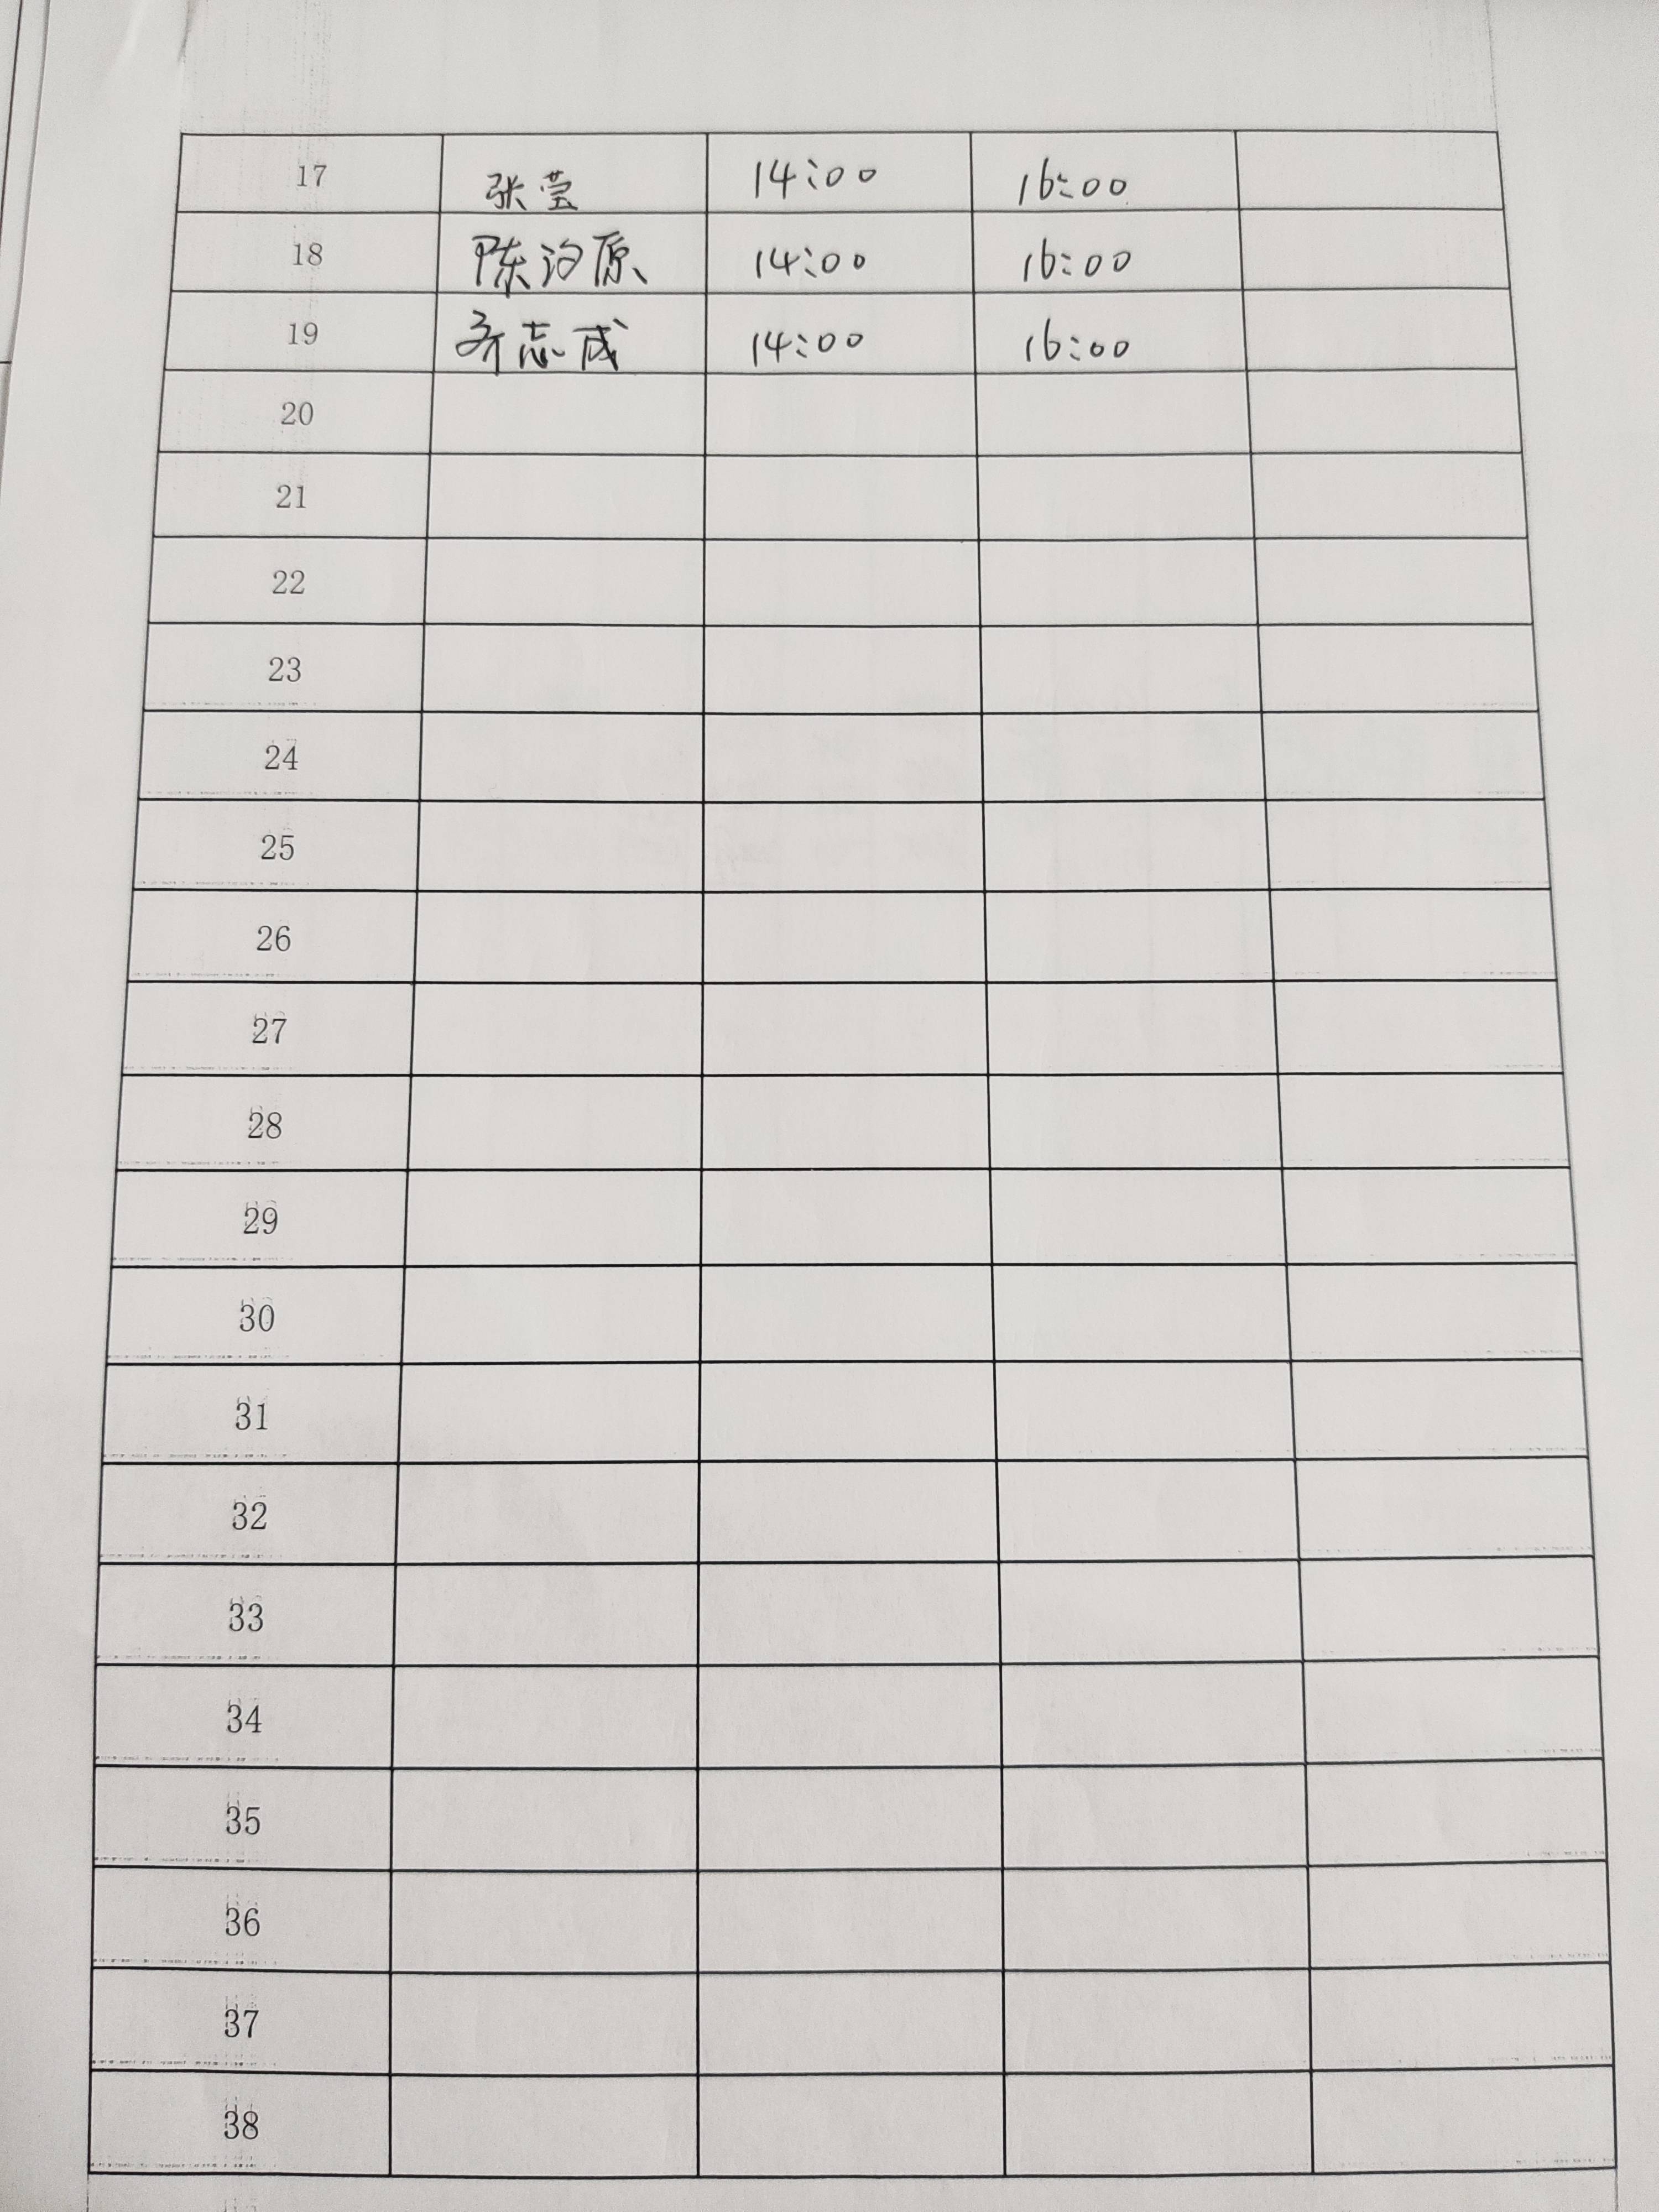 17 张莹 14:00 16:00
18 陈汐原 14:00 16:00
19 齐志成 14:00 16:00
20
21
22
23
24
25
26
27
28
29
30
31
32
33
34
35
36
37
38